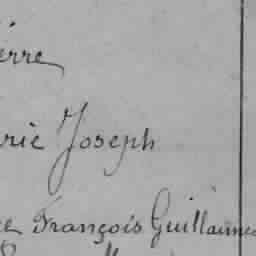 ierre
rie Joseph
e François Guillaume